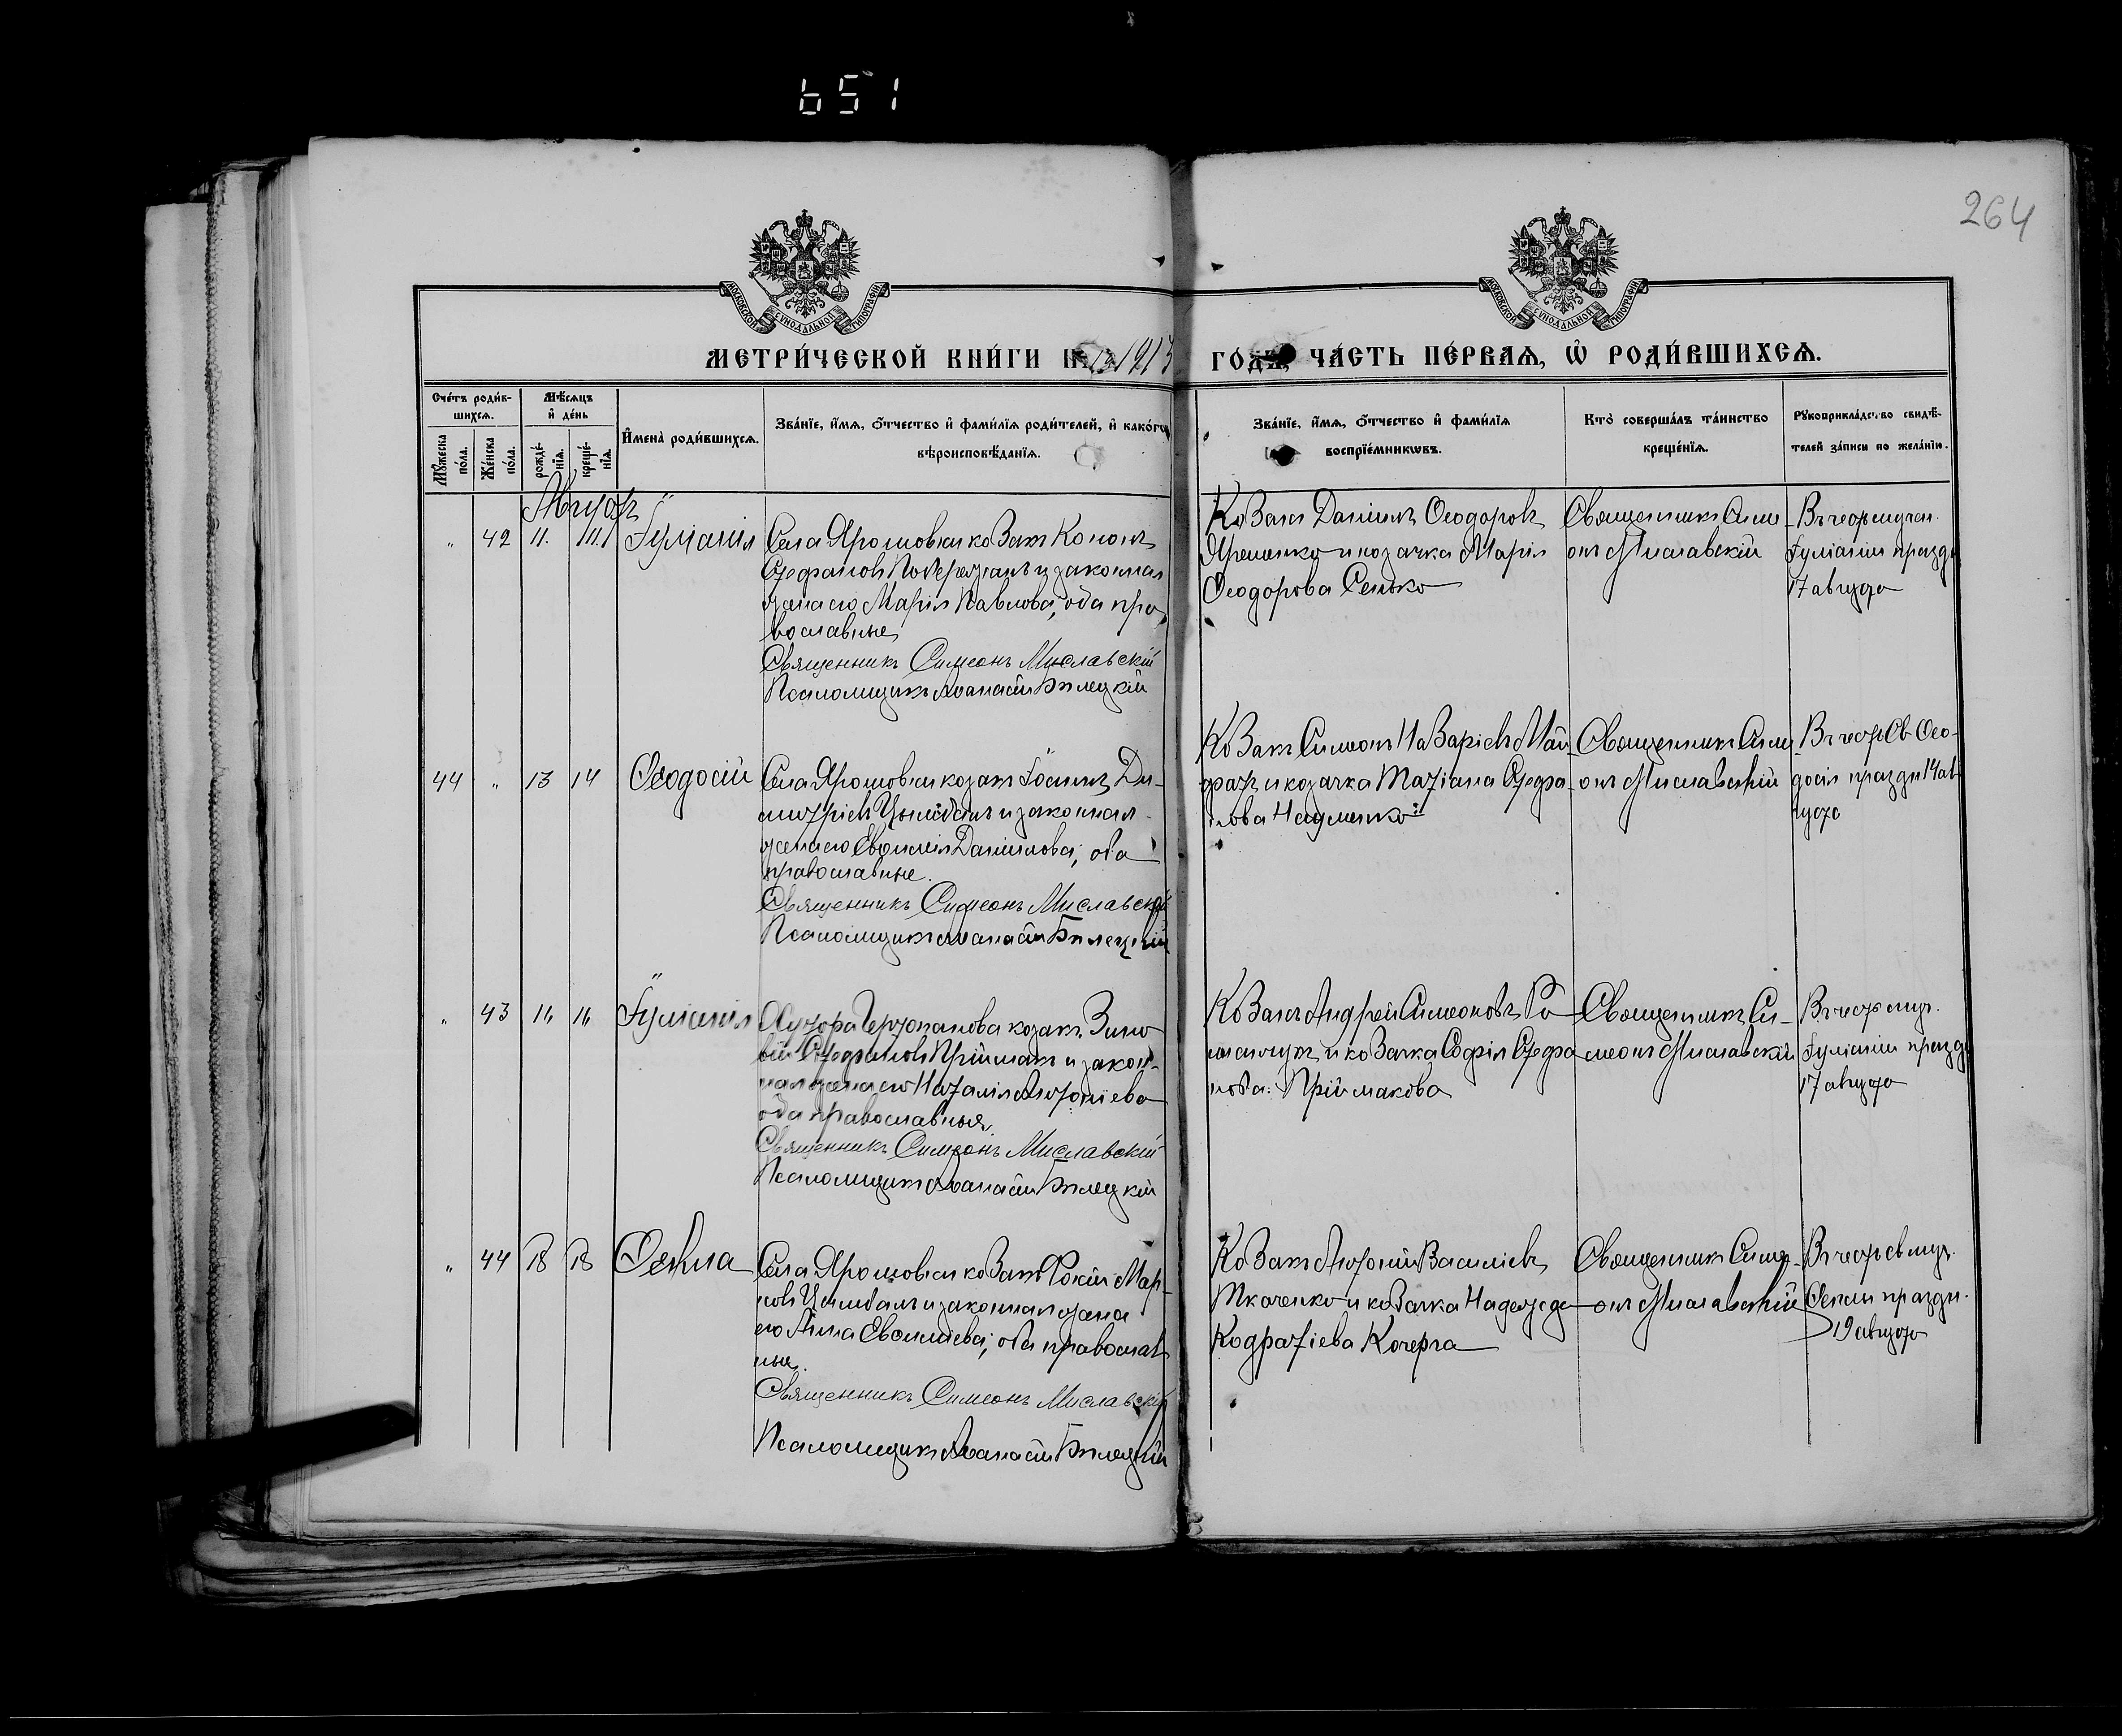 651
264
МОСКОВСКОЙ СѴНОДАЛЬНОЙ ТИПОГРАФІИ
МОСКОВСКОЙ СѴНОДАЛЬНОЙ ТИПОГРАФІИ
МЕТРИ́ЧЕСКОЙ КНИ́ГИ НА 1913 ГО́ДЪ, ЧА́СТЬ ПЕ́РВАѦ, Ѡ҆ РОДИ́ВШИХСѦ.
Сче́тъ роди́в-
шихсѧ.
Мѹ́жеска по́ла.
Же́нска по́ла.
Мѣ́сѧцъ
и҆ де́нь
рожде́-
нїѧ.
креще́-
нїѧ.
И҆мена̀ роди́вшихсѧ.
Зва́нїе, и҆́мѧ, ѻ҆́тчество и҆ фами́лїѧ роди́телей, и҆ како́гѡ
вѣроисповѣ́данїѧ.
Зва́нїе, и҆́мѧ, ѻ҆́тчество и҆ фами́лїѧ
воспрїе́мникѡвъ.
Кто̀ соверша́лъ та́инство
креще́нїѧ.
Рѹкоприкла́дство свидѣ́-
телей за́писи по жела́нїю.
Август
" 42 11. 111. Іуліанія
Села Ярошовки козакъ Кононъ
Стефановъ и законная
жена его Марія Павлова, оба пра
вославные
Священникъ Симеонъ Миславскій
Псаломщикъ Аѳанасій Бѣлецкій
Козакъ Даніилъ Ѳеодоровъ
Яременко и козачка Марія
Ѳеодорова Сенько
Священникъ Симе-
онъ Миславскій
Въ честь мучен.
Іуліаніи празд.
17 августа
44 " 13 14 Ѳеодосій
Села Ярошовки козакъ Іосифъ Ди-
митріевъ Цымбалъ и законная
жена его Евфимія Даніилова; оба
православные.
Священникъ Симеонъ Миславскій
Псаломщикъ Аѳанасій Бѣлецкій
Козакъ Симеонъ Назаріевъ
и козачка Татіана Стефа-
нова Науменко
Священникъ Симе-
онъ Миславскій
Въ честь Св. Ѳео-
досія праздн. 14 ав-
густа
" 43 16 16 Іуліанія
Хутора козакъ Зино
вій Стефановъ Пріймакъ и закон-
ная жена его Наталія Антоніева
оба православныя
Священникъ Симеонъ Миславскій
Псаломщикъ Аѳанасій Бѣлецкій
Козакъ Андрей Симеоновъ Ро-
манчукъ и козачка Софія Стефа
нова Пріймакова
Священникъ Си-
меонъ Миславскій
Въ честь муч.
Іуліаніи празд.
17 августа
" 44 18 18 Ѳекла
Села Ярошовки козакъ Фокій Мар-
ковъ Цымбалъ и законная жена
его Анна Евфиміева; оба православ
ные.
Священникъ Симеонъ Миславскій
Псаломщикъ Аѳанасій Бѣлецкій
Козакъ Антоній Василіевъ
Ткаченко и козачка Надежда
Кодратіева Кочерга
Священникъ Симе-
онъ Миславскій
Въ честь св. муч.
Ѳеклы праздн.
19 августа